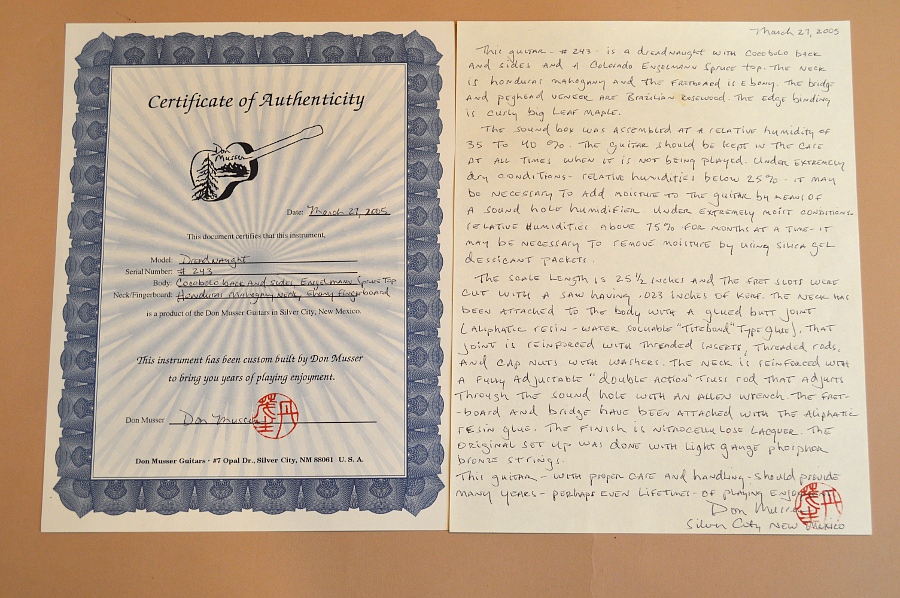 Certificate of Authenticity
Don
Musser
Date: March 27, 2005
This document certifies that this instrument,
Model: Dreadnaught
Serial Number: # 243
Body: Cocobolo back and sides, Engelmann Spruce Top
Neck/Fingerboard: Honduras Mahogany Neck, Ebony Fingerboard
is a product of the Don Musser Guitars in Silver City, New Mexico.
This instrument has been custom built by Don Musser
to bring you years of playing enjoyment.
Don Musser Don Musser
Don Musser Guitars • #7 Opal Dr., Silver City, NM 88061 U. S. A.
March 27, 2005
This guitar - # 243 - is a dreadnaught with Cocobolo back
and sides and a Colorado Engelmann Spruce top. The neck
is honduras mahogany and the fretboard is Ebony. The bridge
and peghead veneer are Brazilian rosewood. The edge binding
is curly big leaf maple.
The sound box was assembled at a relative humidity of
35 to 40 %. The guitar should be kept in the case
at all times when it is not being played. Under extremely
dry conditions - relative humidities below 25% - it may
be necessary to add moisture to the guitar by means of
a sound hole humidifier. Under extremely moist conditions
relative humidities above 75% for months at a time - it
may be necessary to remove moisture by using silica gel
dessicant packets.
The scale length is 25 1/2 inches and the fret slots were
cut with a saw having .023 inches of kerf. The neck has
been attached to the body with a glued butt joint
(aliphatic resin - water soluable "Titebond" type glue). That
joint is reinforced with threaded inserts, threaded rods,
and cap nuts with washers. The neck is reinforced with
a fully adjustable "double action" truss rod that adjusts
through the sound hole with an allen wrench. The fret-
-board and bridge have been attached with the aliphatic
resin glue. The finish is nitrocellulose lacquer. The
original set up was done with light gauge phosphor
bronze strings.
This guitar - with proper care and handling - should provide
many years - perhaps even lifetimes - of playing enjoyment.
Don Musser
Silver City New Mexico